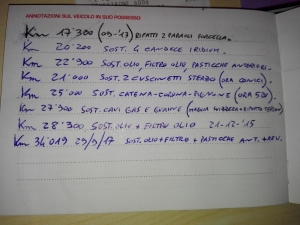 ANNOTAZIONI SUL VEICOLO IN SUO POSSESSO
Km 17'300 (09-'13) RIFATTI 2 PARAOLI FORCELLA.
Km 20'200 SOST. 4 CANDELE IRIDIUM.
Km 22'900 SOST. OLIO, FILTRO OLIO PASTICCHE ANTERIORI.
Km 21'000 SOST. 2 CUSCINETTI STERZO (ORA CONICI).
Km 25'000 SOST. CATENA-CORONA-PIGNONE (ORA 520)
Km 27'300 SOST. CAVI GAS E
Km 28'300 SOST. OLIO + FILTRO OLIO 21-12-'15
Km 34'019 29/9/17 SOST. OLIO+FILTRO + PASTICCHE ANT. + REV.